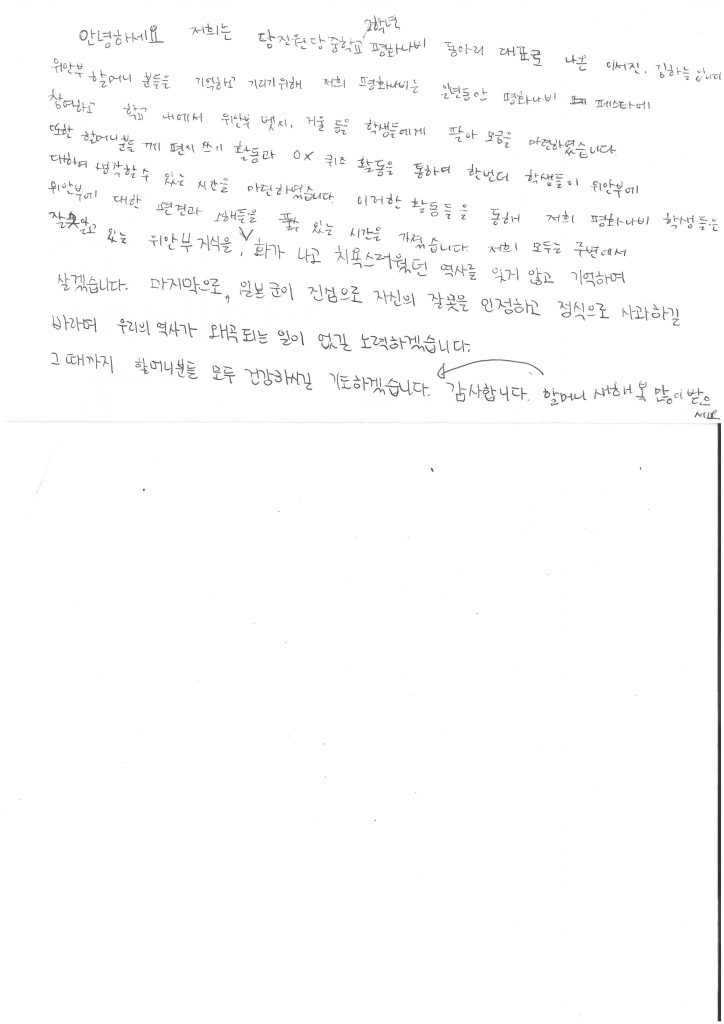 2학년
안녕하세요 저희는 당진원당중학교 평화나비 동아리 대표로 나온 이서진, 김하늘입니다
위안부 할머니 분들을 기억하고 기리기위해 저희 평화나비는 일년동안 평화나비 페스타에
참여하고 학교 내에서 위안부 뱃지, 거울 등을 학생들에게 팔아 모금을 마련하였습니다.
또한 할머니분들께 편지 쓰기 활동과 OX 퀴즈 활동을 통하여 한번더 학생들이 위안부에
대하여 생각할 수 있는 시간을 마련하였습니다. 이러한 활동들을 통해 저희 평화나비 학생들은
위안부에 대한 편견과 오해들을 풀 수 있는 시간을 가졌습니다. 저희 모두는 주변에서
잘못알고 있는 위안부 지식을, 화가 나고 치욕스러웠던 역사를 잊게 않고 기억하며
살겠습니다. 마지막으로, 일본군이 진심으로 자신의 잘못을 인정하고 정식으로 사과하길
바라며 우리의 역사가 왜곡되는 일이 없길 노력하겠습니다.
그때까지 할머니분들 모두 건강하시길 기도하겠습니다. 감사합니다. 할머니 새해 복 많이 받으
세요